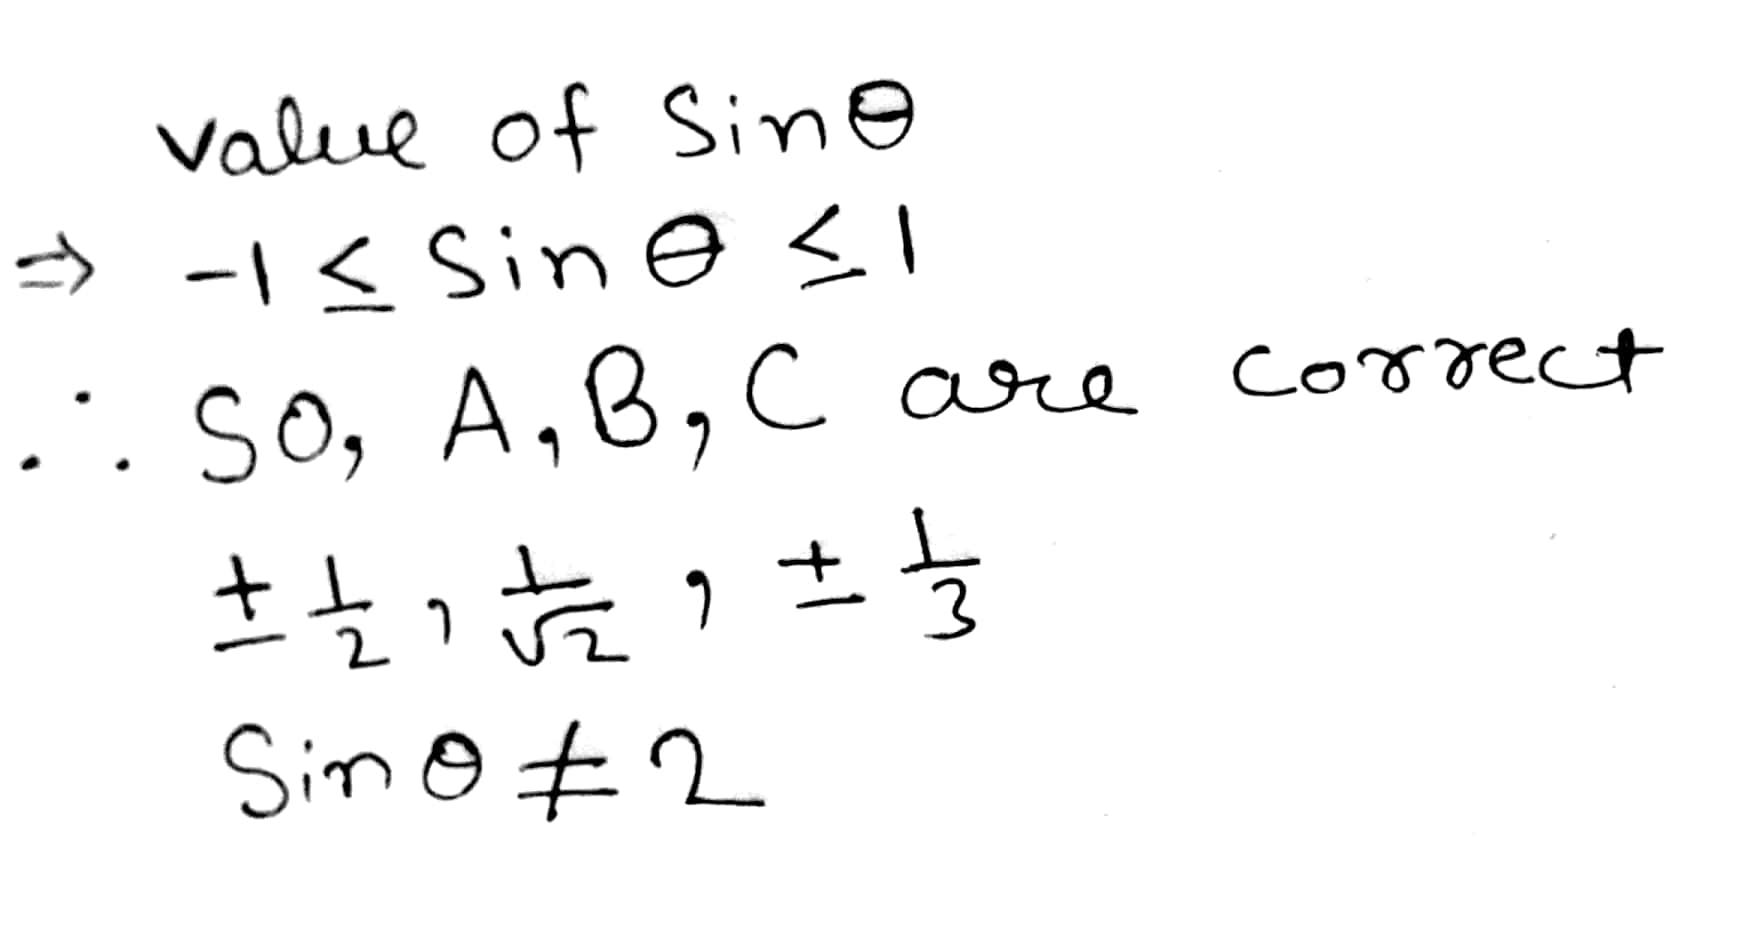 value of Sinθ
⇒ -1 ≤ Sin θ ≤ 1
∴ SO, A, B, C are correct
± 1/2, 1/√2, ± 1/3
Sin θ ≠ 2